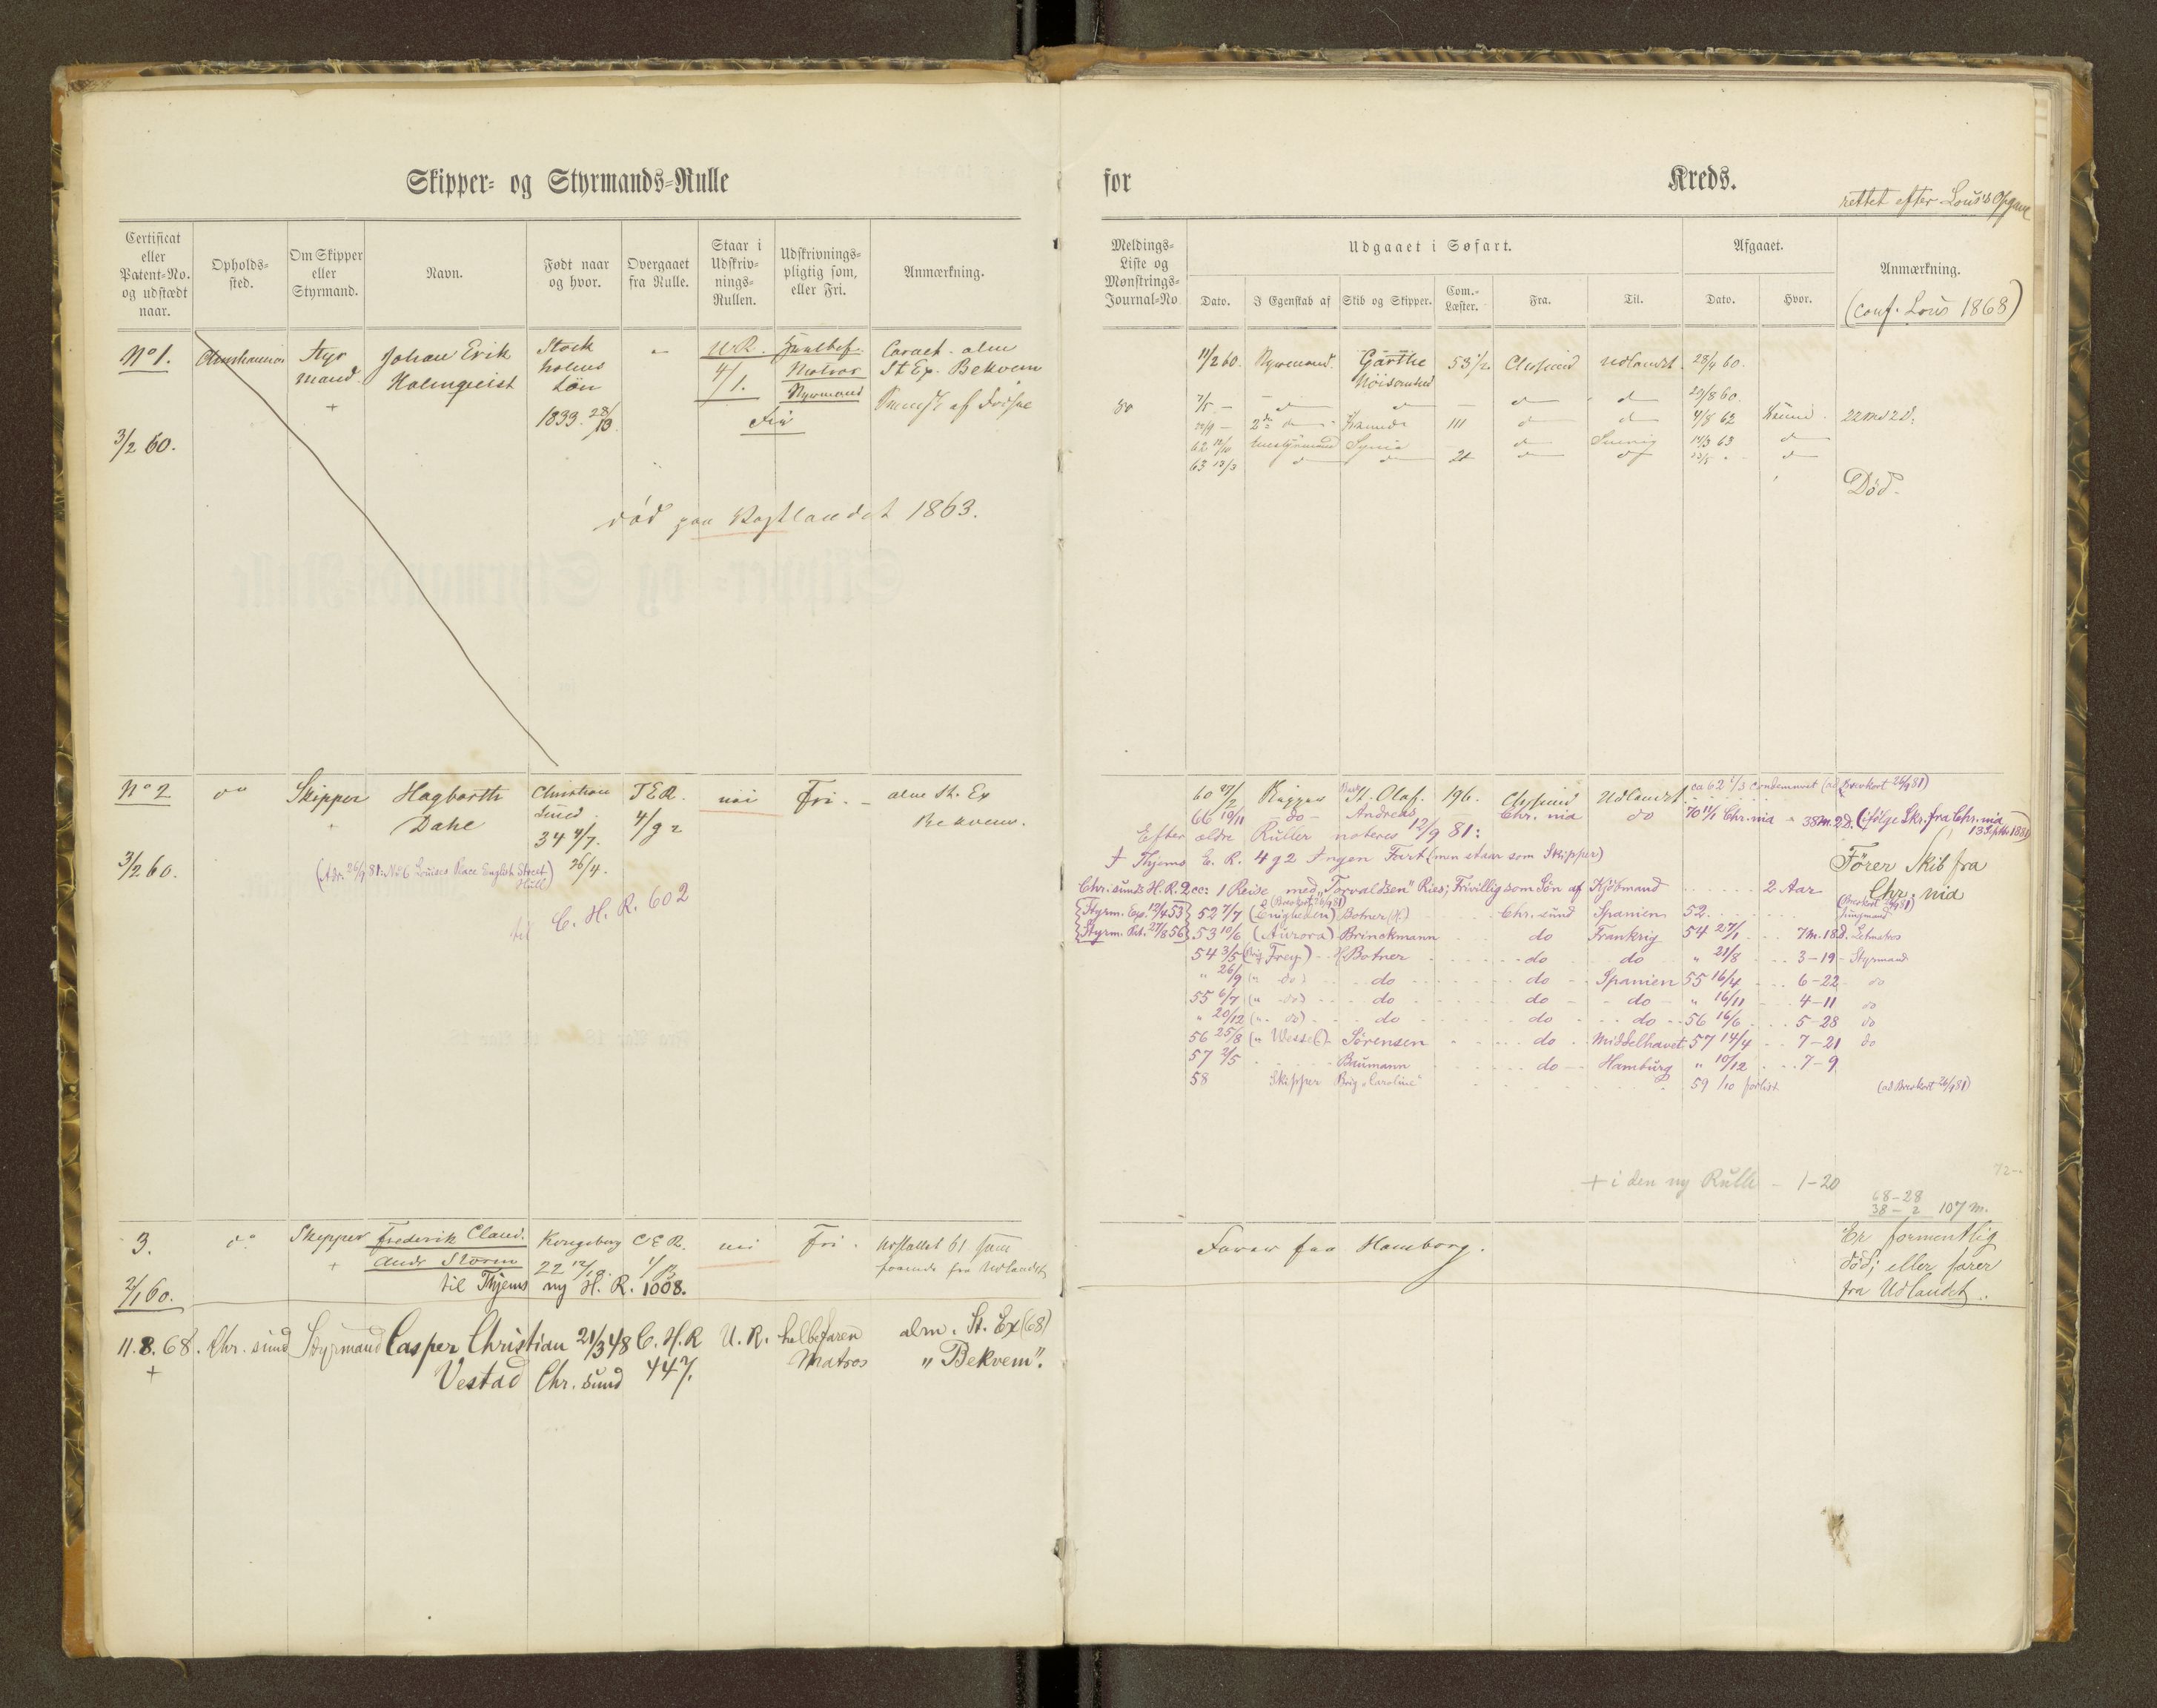 Skipper- og Styrmands-Rulle
for Kreds.
rettet efter Lous's Opgave
Certificat eller Patent-No. og udstædt naar.
Opholds-sted.
Om Skipper eller Styrmand.
Navn.
Født naar og hvor.
Overgaaet fra Rulle.
Staar i Udskriv-nings-Rullen.
Udskrivnings-pligtig som, eller Fri.
Anmærkning.
Meldings-Liste og Mønstrings-Journal-No
Udgaaet i Søfart.
Dato.
I Egenskab af
Skib og Skipper.
Com.-Læster.
Fra.
Til.
Afgaaet.
Dato.
Hvor.
Anmærkning.
(conf. Lous 1868)
No 1.
Styr
mand
+
Johan Erik
Holmqvist
Stock
holms
Lön
1833 28/
U.R.
4/1.
Matros
Styrmand
Fri
alm
St Ex. Bekvem
3/2 60.
død paa 1863.
11/2 60. Styrmand Garthe 53 1/2 Chrsund Udlandt 28/4 60.
29/8 60.
111
4/8 62
22 Md 2 D.
62 12/10 Sverig 14/3 63
63 13/3
Død.
No 2 do Skipper Hagbarth
Dahl
Christian
sund
34 4/7.
26/4.
T E R.
4/92
nei Fri. alm St. Ex
Bekvem.
3/2 60.
(Adr. 26/9 81: No 6 Louises Place English Street
Hull)
til C. H. R. 602
60 27/2 St. Olaf. 196. Chrsund Udlandt. ca 62 1/3 Condemneret (ad Brevkort 26/9 81)
66 19/11 do Andreas Chr. nia do 70 11/1 Chr.nia 38 M. 2 D. (ifølge Skr. fra Chr.nia
13 Septbr 1881)
Efter ældre Ruller noteres 12/9 81:
I Thjems E. R. 4 g 2 Ingen Fart (men staar som Skipper)
Fører Skib fra
Chr. nia
Chr.sunds H. R. 2 cc: 1 Reise med "Torvaldsen" Ries; Frivillig som Søn af Kjøbmand 2 Aar
{Styrm. Exp. 12/4 53} 52 7/7 (Enigheden) Botner (H) Chr. sund Spanien 52 Jungmand
(Brevkort 26/9 81)
{Styrm. Pat. 27/8 56} 53 10/6 (Aurora) Brinckmann do Frankrig 54 27/1 7 M. 18 d. Letmatros
54 3/5 (Brig Frey) H. Botner do do " 21/8 3-19 - Styrmand
" 26/9 (" do) do do Spanien 55 16/4 6-22 do
55 6/7 (" do) do do do " 16/11 4-11 do
" 20/12 (" do) do do do 56 16/6 5-28 do
56 25/8 (" Wessel) Sørensen do Middelhavet 57 14/4 7-21 do
57 2/5 Baumann do Hamburg " 10/12 7-9
58 Skipper Brig "Caroline" 59 1/10 forlist (ad Brevkort 26/9 81)
+ i den ny Rulle - 1-20
68-28
38-2 107 M.
3. do Skipper Frederik Claud.
Andr Storm
Kongsberg
22 12/10.
C E R.
nei Fri.
61
fra Udlandet
til Thjems ny H. R. 1008.
2/1 60.
Farer fra Hamborg.
Er formentlig
død; eller farer
fra Udlandet.
11.8.68. Chr. sund Styrmand Casper Christian 21/3 48 C. H. R U. R. helbefaren alm. St. Ex (68)
+ Vestad Chr. sund 447. Matros "Bekvem".